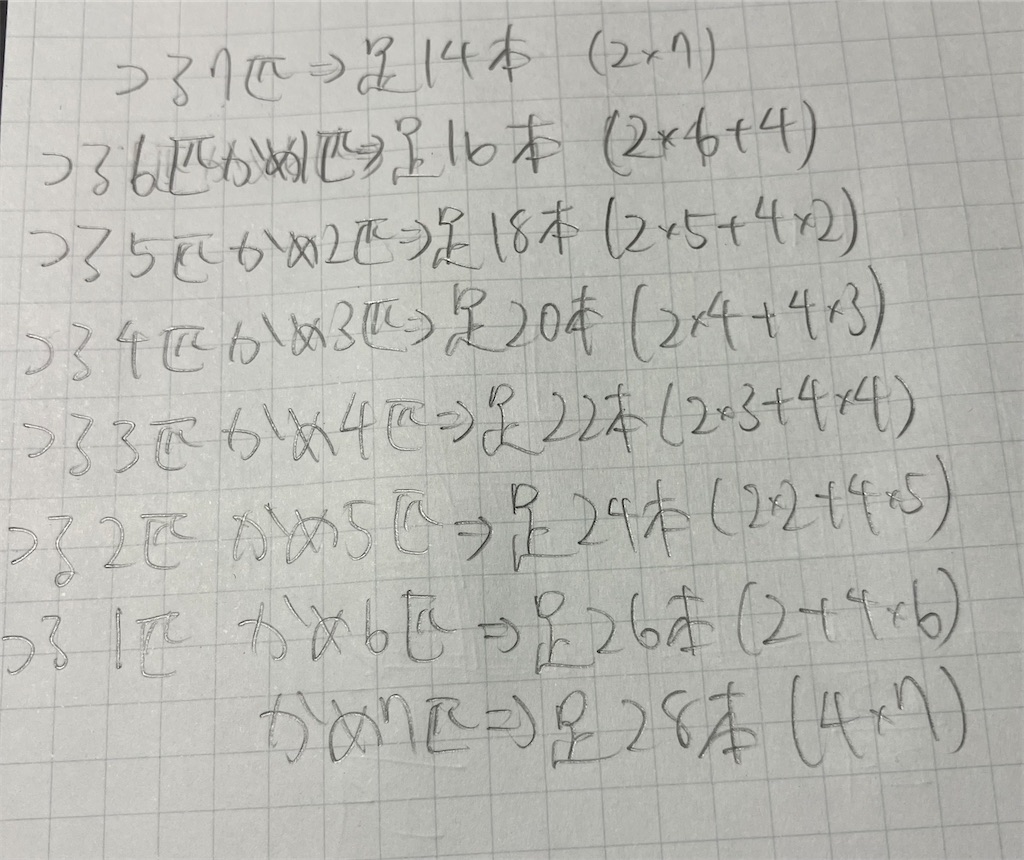 つる7匹⇒足14本 (2×7)
つる6匹かめ1匹⇒足16本 (2×6+4)
つる5匹かめ2匹⇒足18本 (2×5+4×2)
つる4匹かめ3匹⇒足20本 (2×4+4×3)
つる3匹かめ4匹⇒足22本 (2×3+4×4)
つる2匹かめ5匹⇒足24本 (2×2+4×5)
つる1匹かめ6匹⇒足26本 (2+4×6)
かめ7匹⇒足28本 (4×7)